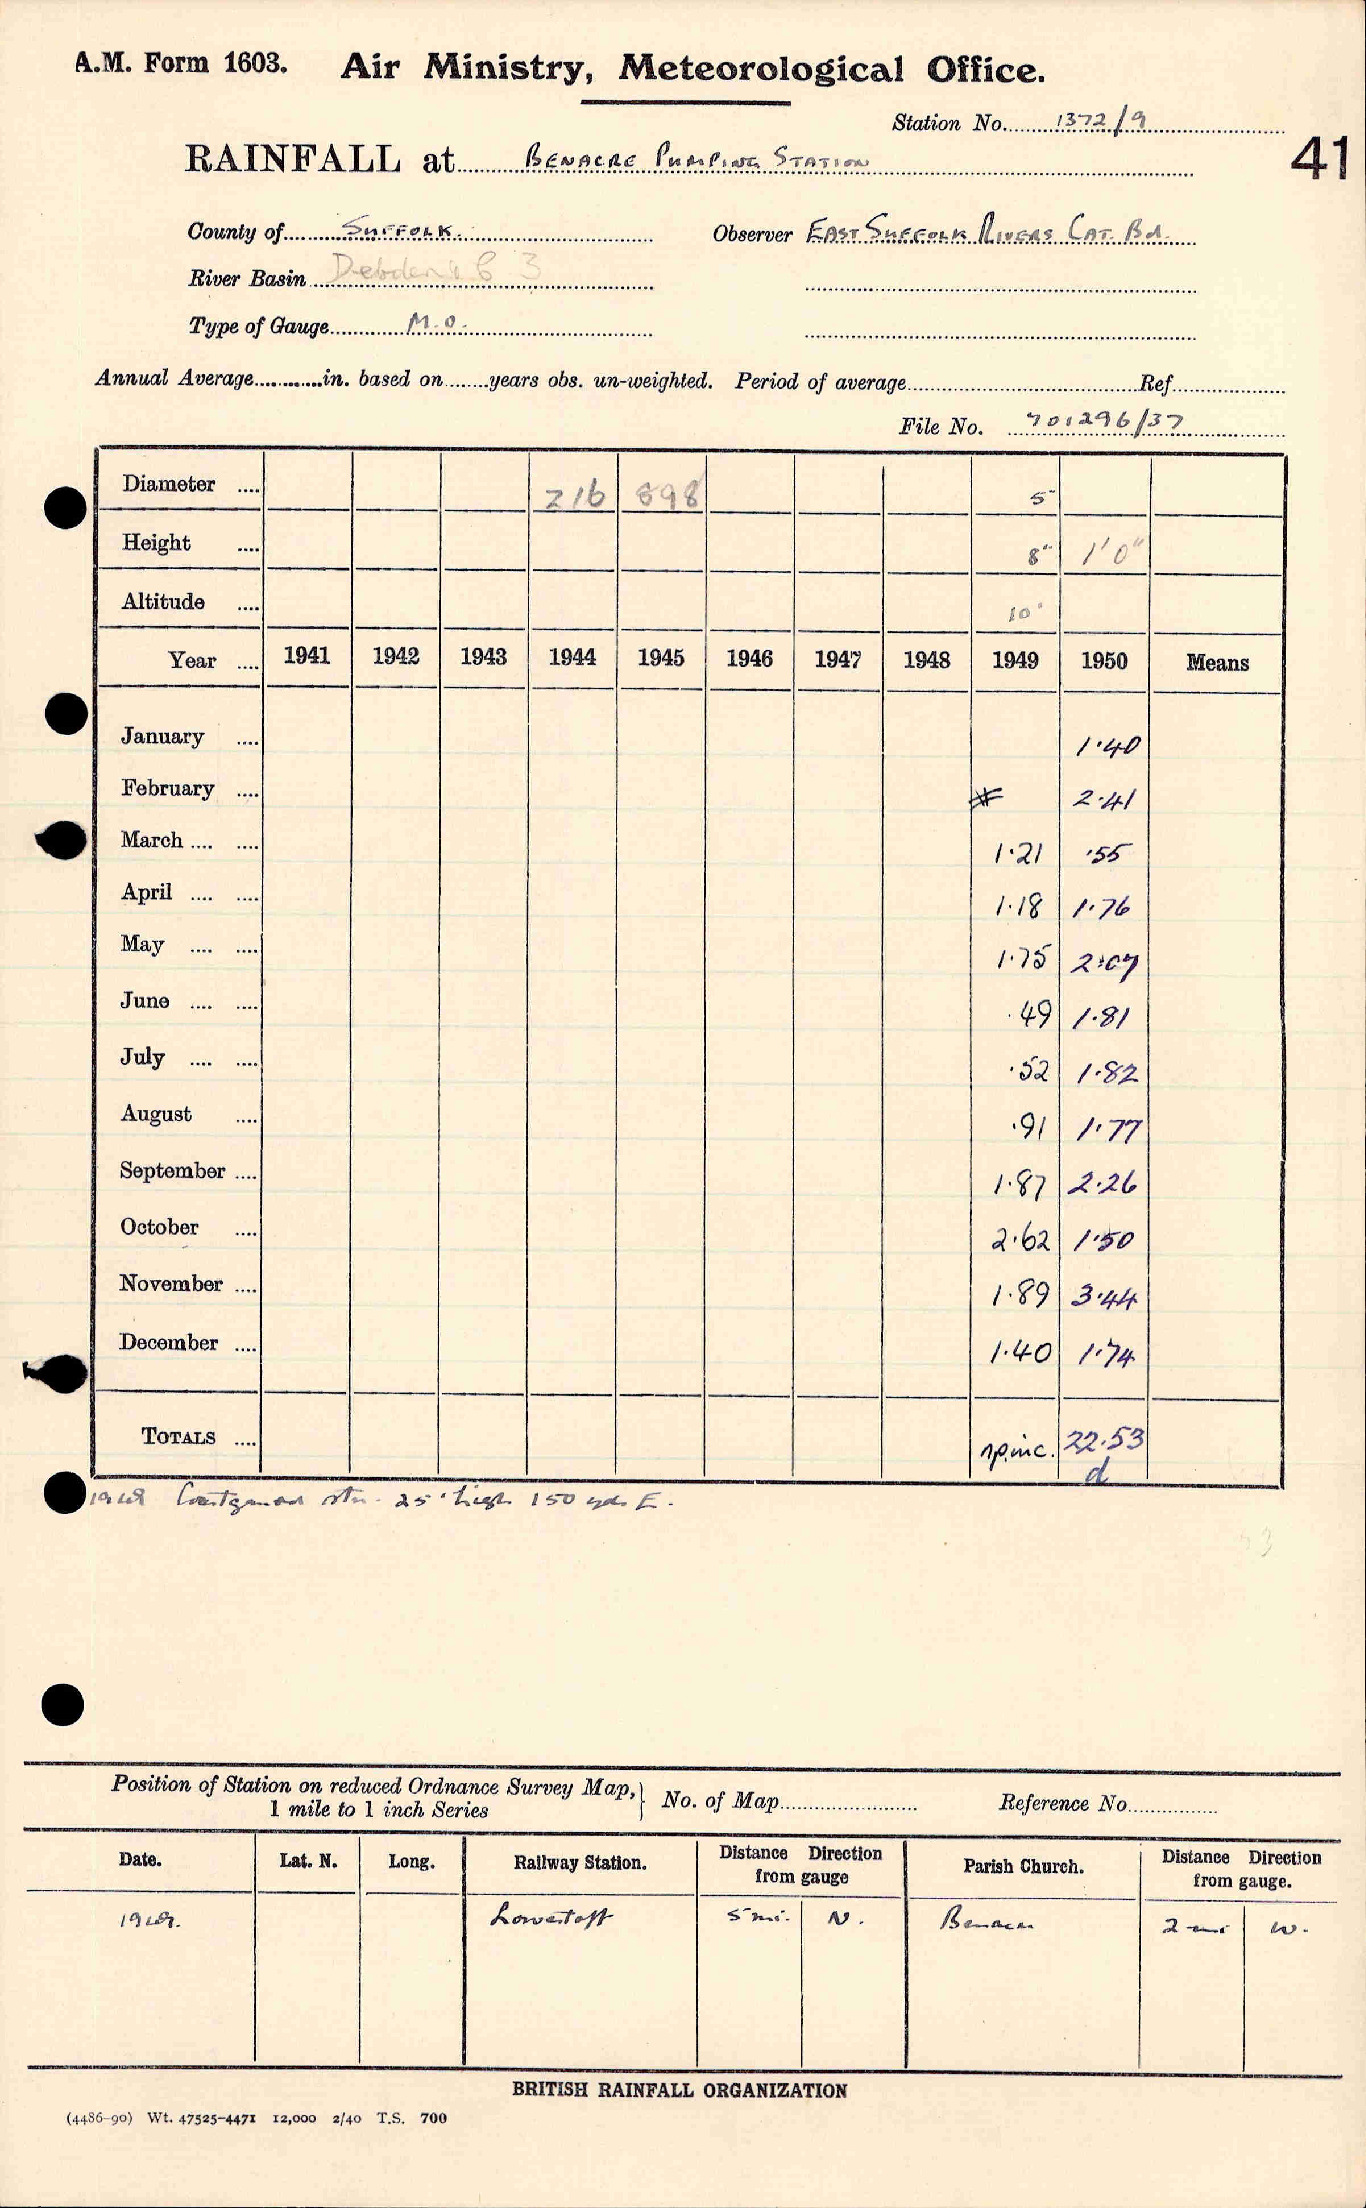 A.M. Form 1603. Air Ministry, Meteorological Office.
Station No. 1372/9
41
RAINFALL at BENACRE PUMPING STATION
County of SUFFOLK. Observer EAST SUFFOLK RIVERS CAT. Bd.
River Basin
Type of Gauge M.O.
Annual Average in. based on years obs. un-weighted. Period of average Ref.
File No. 701296/37
Diameter 216 898 5"
Height 8" 1'0"
Altitude 10'
Year 1941 1942 1943 1944 1945 1946 1947 1948 1949 1950 Means
January 1.40
February # 2.41
March 1.21 .55
April 1.18 1.76
May 1.75 2.07
June .49 1.81
July .52 1.82
August .91 1.77
September 1.87 2.26
October 2.62 1.50
November 1.89 3.44
December 1.40 1.74
TOTALS inc. 22.53
d
1949 Coastguard stn. 25' high 150 yds E.
Position of Station on reduced Ordnance Survey Map, No. of Map Reference No.
1 mile to 1 inch Series
Date. Lat. N. Long. Railway Station. Distance Direction from gauge Parish Church. Distance Direction from gauge.
1949. Lowestoft 5 mi. N. Benacre 2 mi W.
BRITISH RAINFALL ORGANIZATION
(4486-90) Wt. 47525-4471 12,000 2/40 T.S. 700